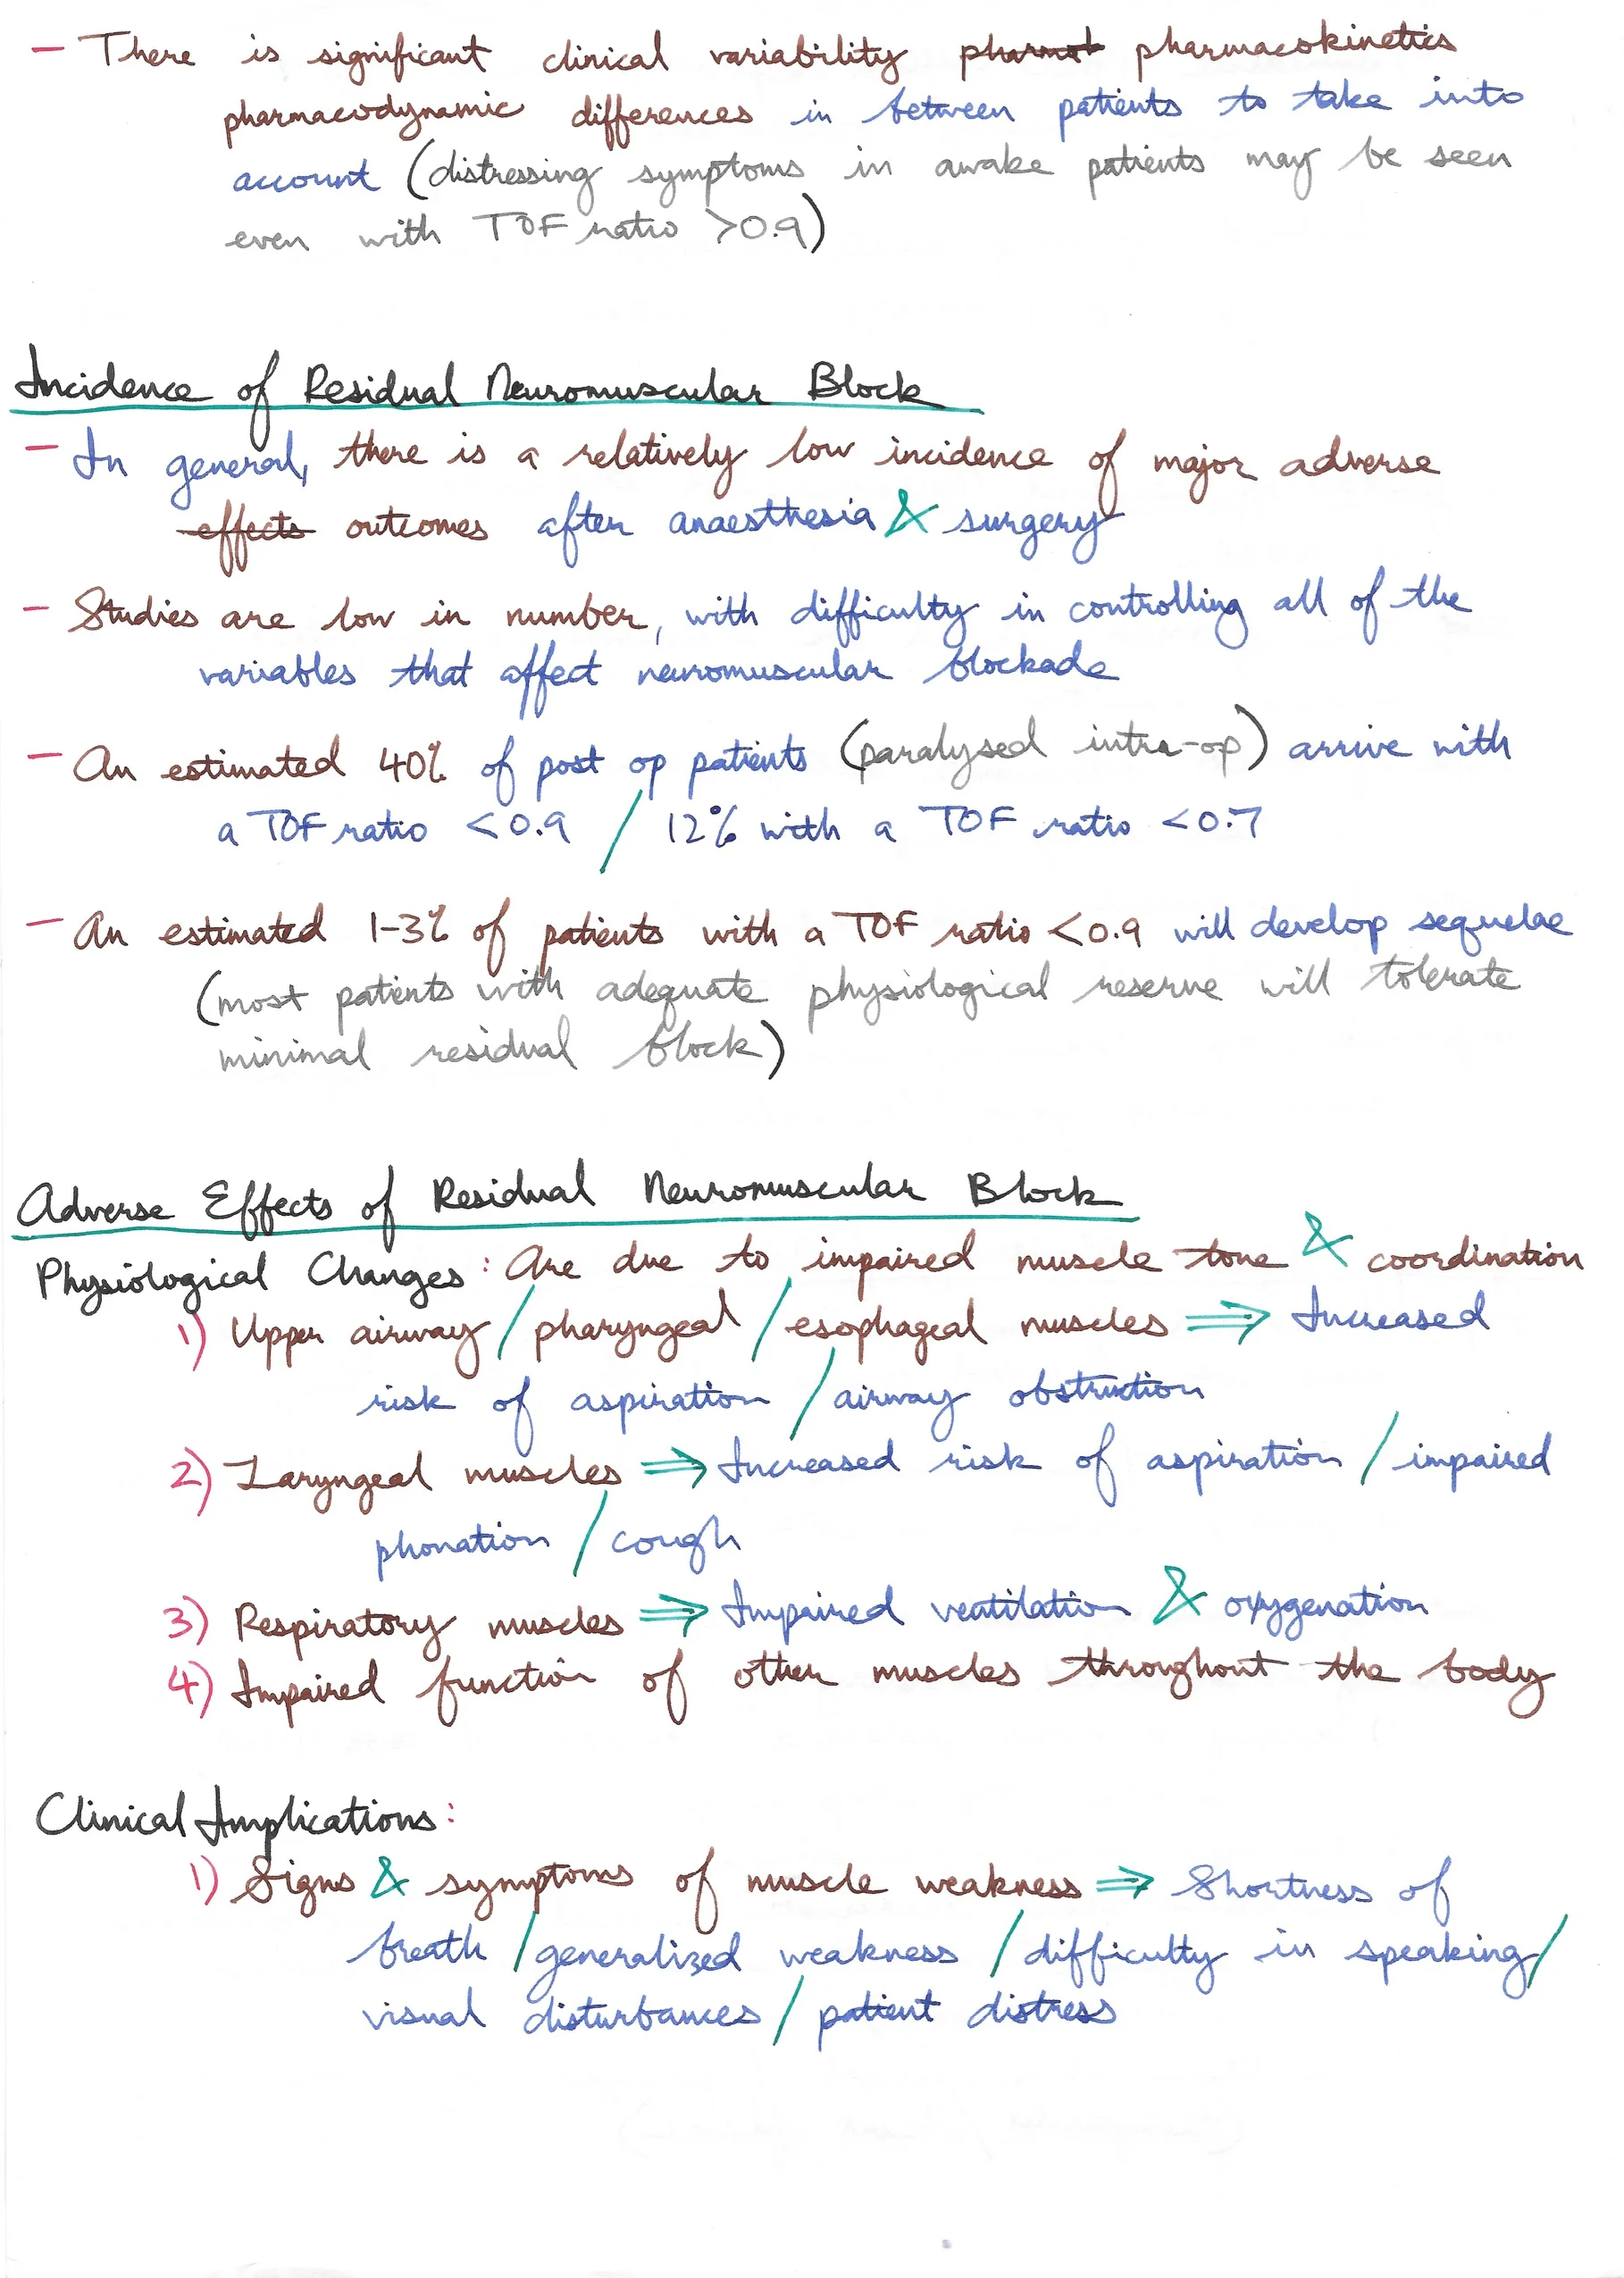 - There is significant clinical variability pharmat pharmacokinetics
pharmacodynamic differences in between patients to take into
account (distressing symptoms in awake patients may be seen
even with TOF ratio >0.9)
Incidence of Residual Neuromuscular Block
- In general, there is a relatively low incidence of major adverse
effects outcomes after anaesthesia & surgery
- Studies are low in number, with difficulty in controlling all of the
variables that affect neuromuscular blockade
- An estimated 40% of post op patients (paralysed intra-op) arrive with
a TOF ratio <0.9 / 12% with a TOF ratio <0.7
- An estimated 1-3% of patients with a TOF ratio <0.9 will develop sequelae
(most patients with adequate physiological reserve will tolerate
minimal residual block)
Adverse Effects of Residual Neuromuscular Block
Physiological Changes: Are due to impaired muscle tone & coordination
1) Upper airway / pharyngeal / esophageal muscles ⇒ Increased
risk of aspiration / airway obstruction
2) Laryngeal muscles ⇒ Increased risk of aspiration / impaired
phonation / cough
3) Respiratory muscles ⇒ Impaired ventilation & oxygenation
4) Impaired function of other muscles throughout the body
Clinical Implications:
1) Signs & symptoms of muscle weakness ⇒ Shortness of
breath / generalized weakness / difficulty in speaking /
visual disturbances / patient distress